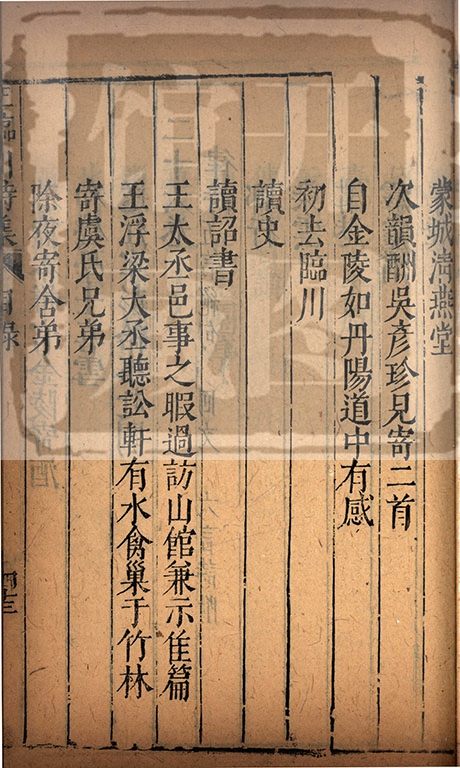 蒙城清燕堂
次韻酬吳彥珍兄寄二首
自金陵如丹陽道中有感
初去臨川
讀史
讀詔書
王太丞邑事之暇過訪山館兼示隹篇
王浮梁太丞聽訟軒有水禽巢于竹林
寄虞氏兄弟
除夜寄舍弟